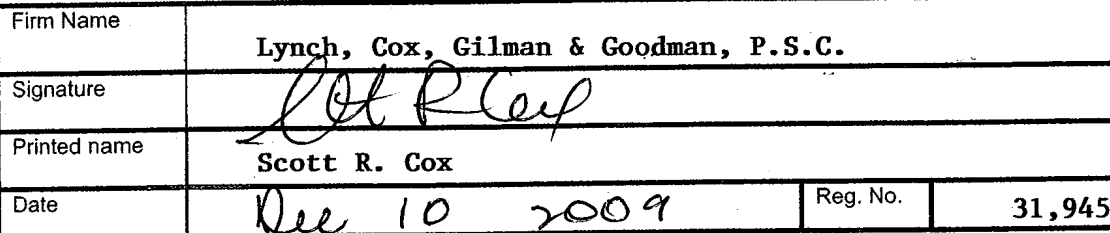 Firm Name
Lynch, Cox, Gilman & Goodman, P.S.C.
Signature
Scott R. Cox
Printed name
Scott R. Cox
Date Dec 10 2009 Reg. No. 31,945